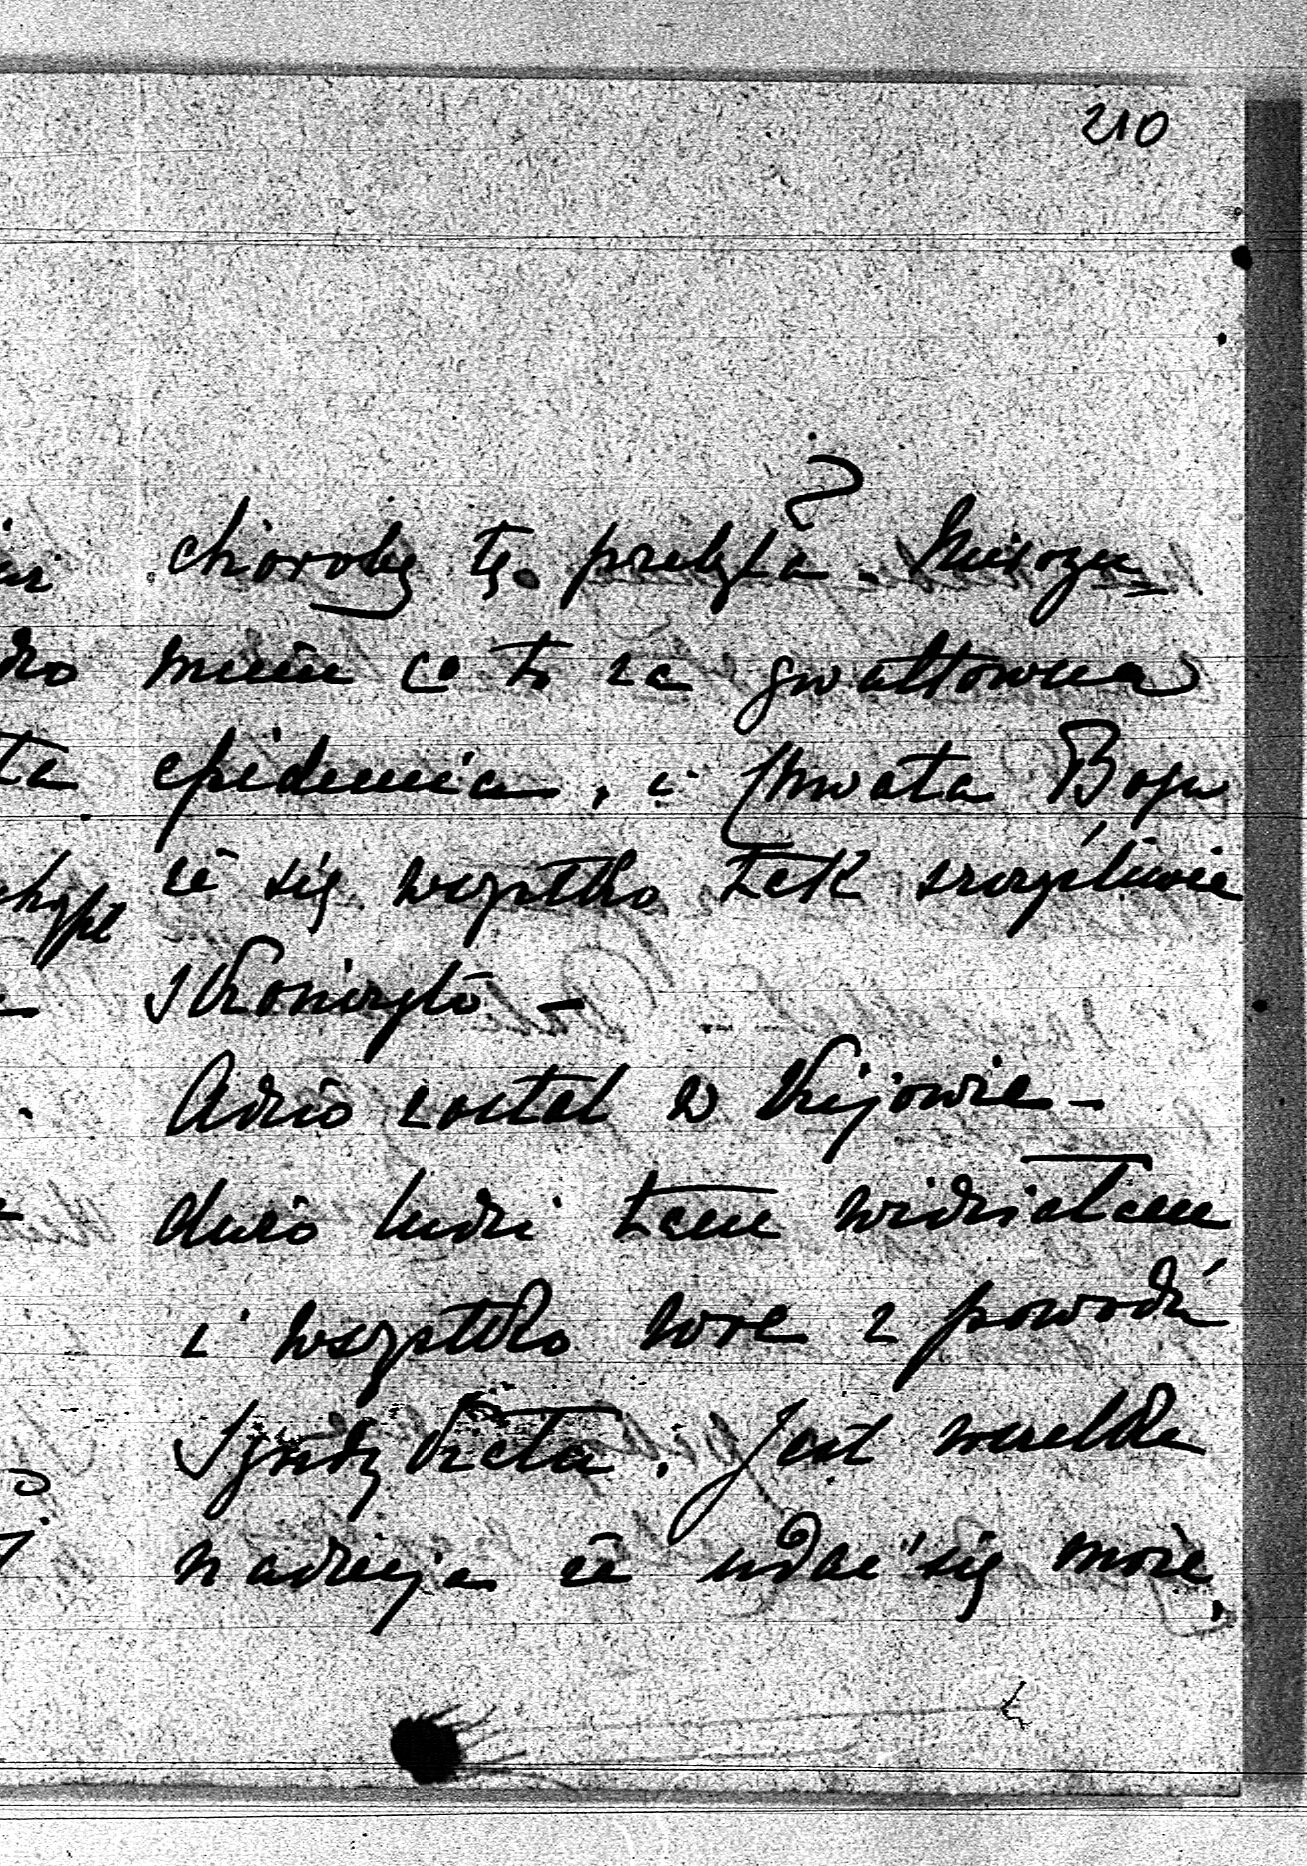 210
chorobę tę przebyła.
co to za gwałtowna
epidemia, i Chwała Bogu
że się wszystko tak szczęśliwie
skończyło –
Adzio został w Kijowie –
dużo ludzi tam widziałam
i wszystko wre z powodu
Jest wielka
nadzieja że udać się może,